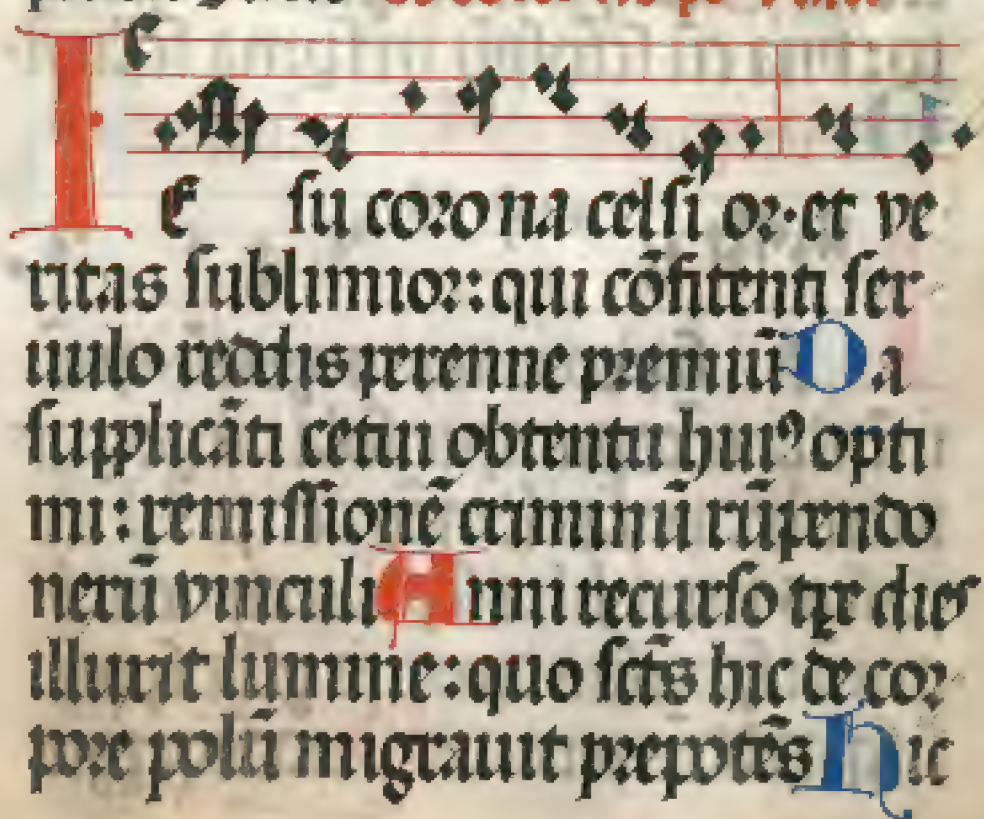 IE su coro na celsi or. et ve
ritas sublimior: qui cōfitenti ser
uulo reddis perenne premiū Da
supplicāti cetui obtentu huiꝰ opti
mi: remissionē criminū rūpendo
nexū vinculi Anni recurso tꝑe dies
illuxit lumine: quo sct̄s hic de cor
pore polū migrauit prepotēs Hic